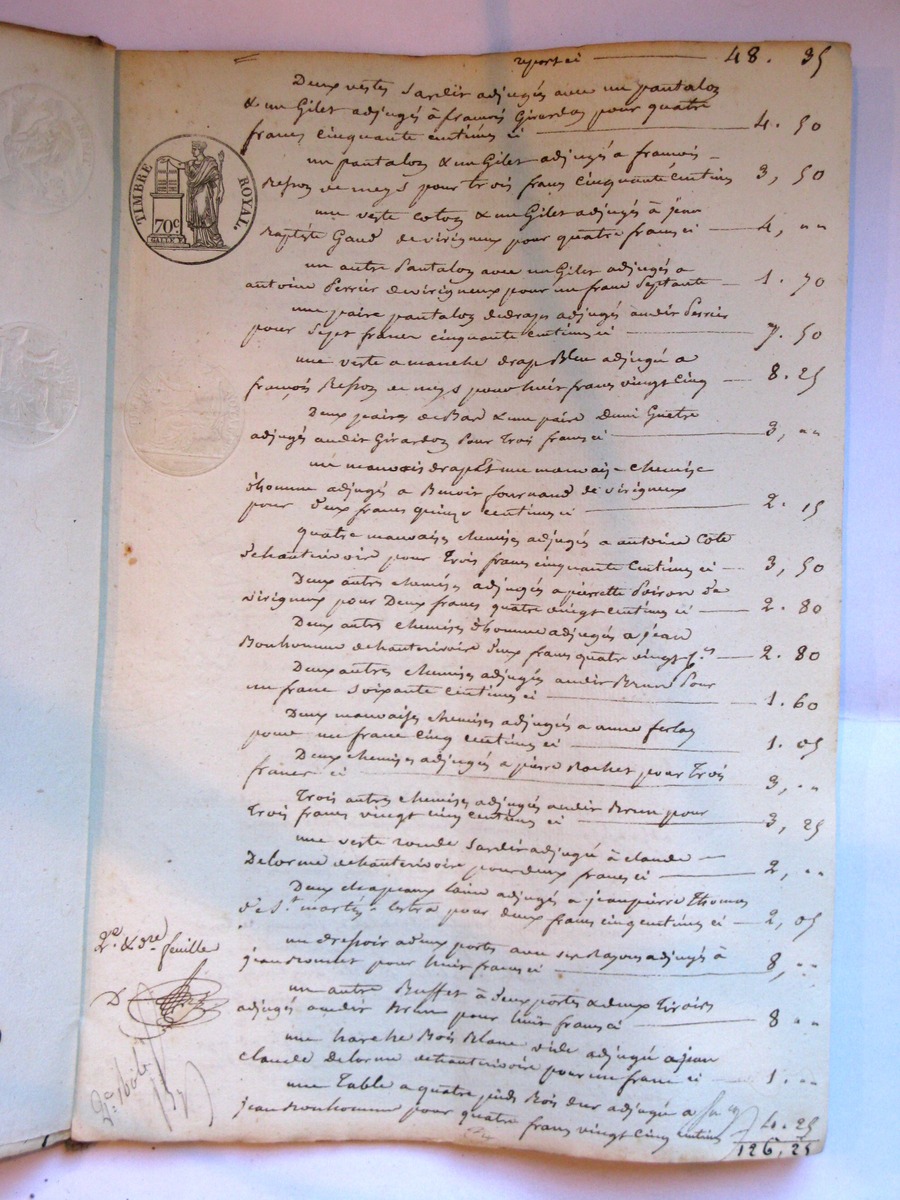 report ci 48. 35
Deux vestes sardir adjugés avec un pantalon
& un Gilet adjugés à francois Girardon pour quatre
francs cinquante centimes ci 4. 50
un pantalon & un Gilet adjugés a francois
de meys pour trois francs cinquante centimes 3, 50
une veste coton & un Gilet adjugés à jean
Baptiste Gaud de virigneux pour quatre francs ci 4, ""
un autre Pantalon avec un Gilet adjugés a
antoine Perrier de virigneux pour un franc septante 1. 70
une paire pantalon de drap adjugés audit Perrier
pour sept francs cinquante centimes ci 7. 50
une veste a manche drap Bleu adjugée a
francois de meys pour huit francs vingt cinq 8. 25
Deux paires de Bas & une paire Demi Guetre
adjugés audit Girardon Pour Trois francs ci 3, ""
un mauvais drap Et une mauvaise chemise
d'homme adjugés a Benoit fournand de virigneux
pour deux francs quinze centimes ci 2. 15
quatre mauvaises chemises adjugés a antoine Cote
de chanterivoire pour Trois francs cinquante Centimes ci 3, 50
Deux autres chemises adjugés a pierrette Poiron de
virigneux pour Deux francs quatre vingt centimes ci 2. 80
Deux autres chemises d'homme adjugés a jean
Bonhomme de chanterivoire deux francs quatre vingt 2. 80
Deux autres chemises adjugés audit Brun Pour
un franc soixante centimes ci 1. 60
Deux mauvaises chemises adjugés a anne ferlay
pour un franc cinq centimes ci 1. 05
Deux chemises adjugés a pierre Rochet pour Trois
francs ci 3, ""
Trois autres chemises adjugés audit Brun pour
Trois francs vingt cinq centimes ci 3, 25
une veste ronde sardir adjugée à claude
Delorme de chanterivoire pour deux francs ci 2, ""
Deux chapeaux laine adjugés a jean pierre Thomas
de St. martin Lestra pour deux francs cinq centimes ci 2, 05
un dressoir a deux portes avec ses Rayons adjugés à
jean pour huit francs ci 8, ""
un autre Buffet à deux portes & deux Tiroirs
adjugés audit Brun pour huit francs ci 8 ""
une harche Bois Blanc vide adjugée a jean
claude Delorme de chanterivoire pour un franc ci 1. ""
une Table a quatre pieds Bois dur adjugée a
jean Bonhomme pour quatre francs vingt cinq centimes 4. 25
126, 25
TIMBRE ROYAL.
70c
2e. & dre. feuille